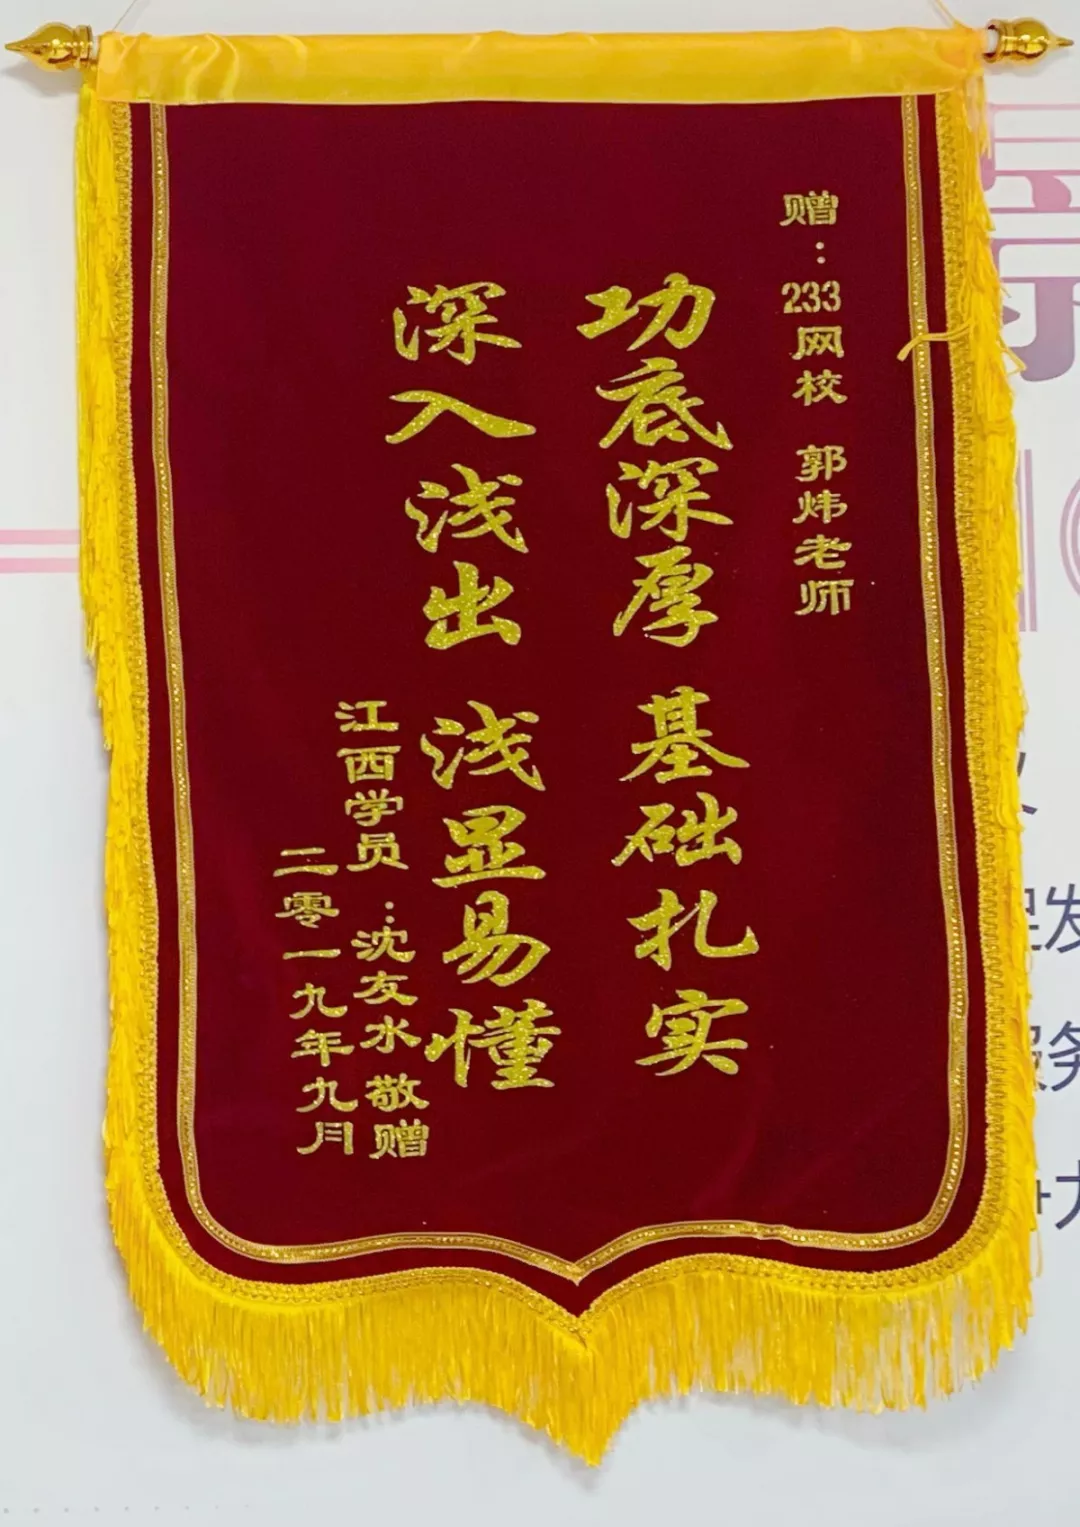 赠：233网校 郭炜老师
功底深厚 基础扎实
深入浅出 浅显易懂
江西学员：沈友水 敬赠
二零一九年九月
发
服务